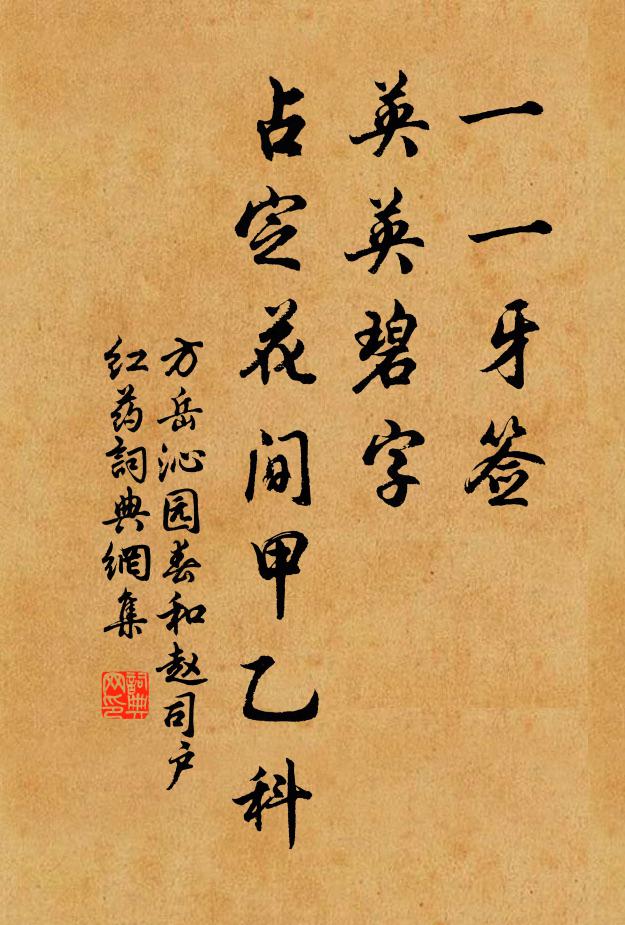 一一牙签
英英碧字
占定花间甲乙科
方岳沁园春和赵司户
红药詞典網集
詞典网印